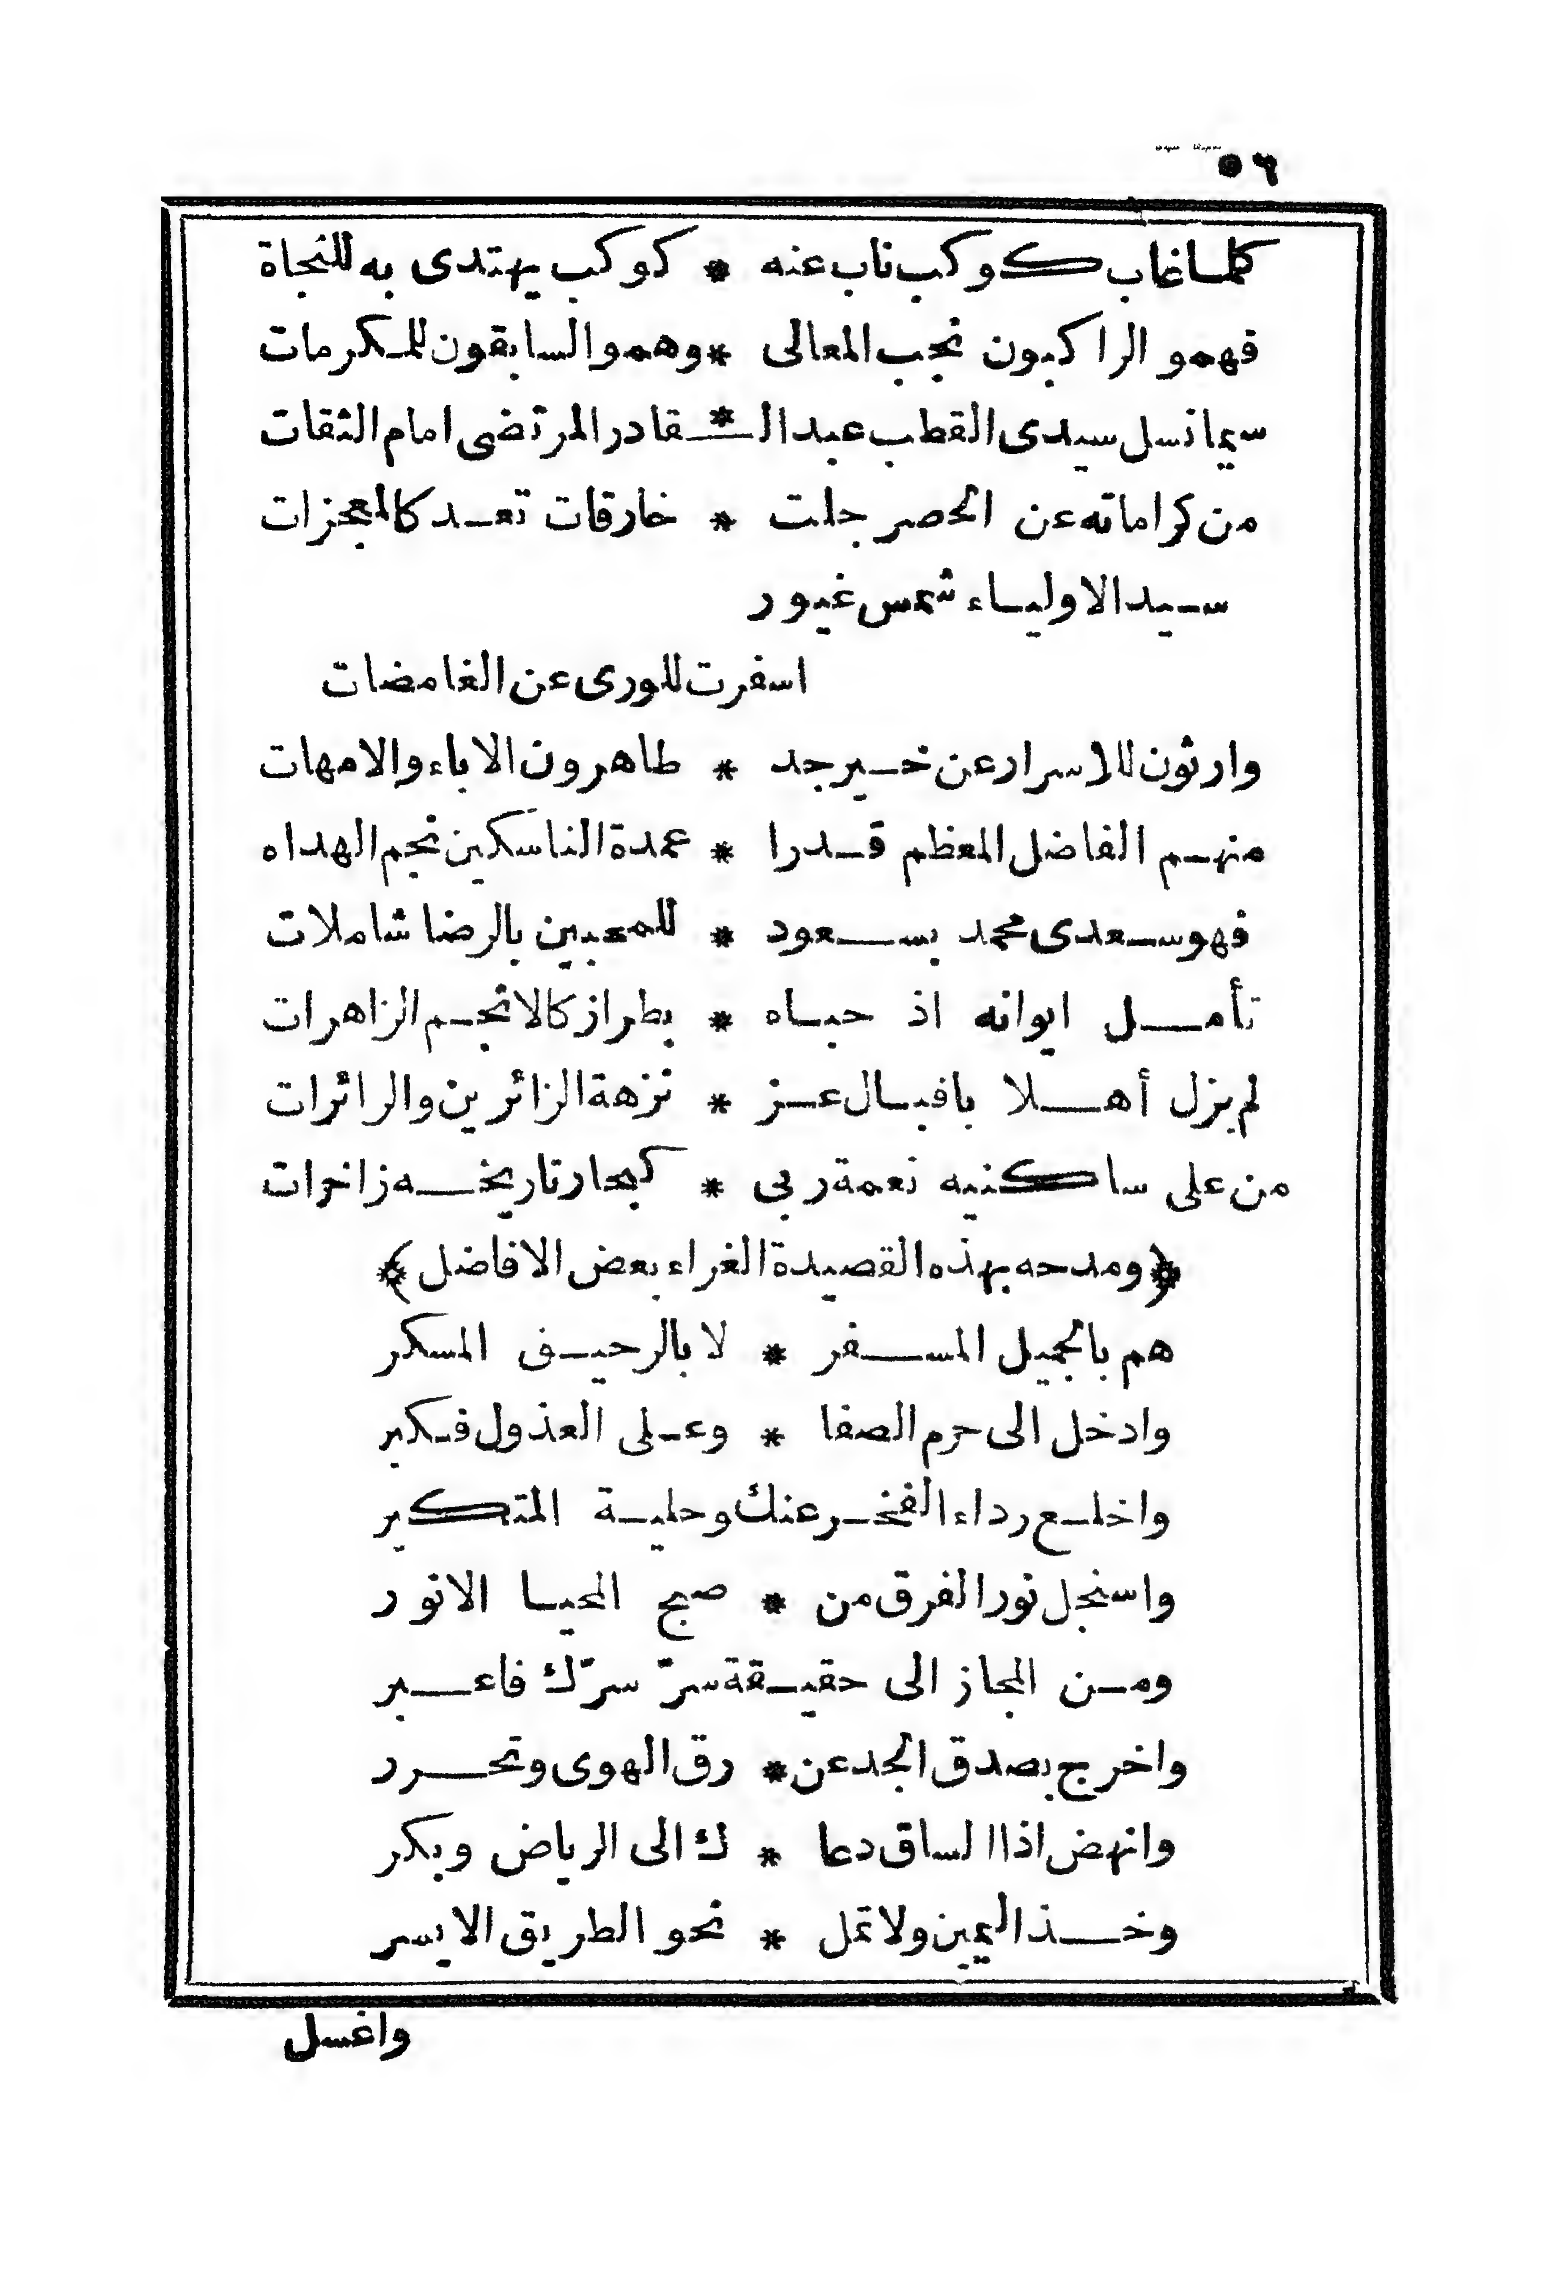 ٥٦
كلما غاب كوكب ناب عنه * كوكب يهتدى به للنجاة
فهمو الراكبون نجب المعالى * وهمو السابقون للمكرمات
سيما نسل سيدى القطب عبد الـ * ـقادر المرتضى امام الثقات
من كراماته عن الحصر جلت * خارقات تعد كالمعجزات
سيد الاولياء شمس غيور
اسفرت للورى عن الغامضات
وارثون للاسرار عن خير جد * طاهرون الاباء والامهات
منهم الفاضل المعظم قدرا * عمدة الناسكين نجم الهداه
فهو سعدى محمد بسعود * للمحبين بالرضا شاملات
تأمل ايوانه اذ حباه * بطراز كالانجم الزاهرات
لم يزل أهلا باقبال عز * نزهة الزائرين والزائرات
من على ساكنيه نعمة ربى * كبحار تاريخه زاخرات
﴿ومدحه بهذه القصيدة الغراء بعض الافاضل﴾
هم بالجميل المسفر * لا بالرحيق المسكر
وادخل الى حرم الصفا * وعلى العذول فكبر
واخلع رداء الفخر عنك وحلية المتكبر
واستجل نور الفرق من * صبح المحيا الانور
ومن المجاز الى حقيقة سرّ سرّك فاعبر
واخرج بصدق الجد عن * رق الهوى وتحرر
وانهض اذا الساق دعا * ك الى الرياض وبكر
وخذ اليمين ولا تمل * نحو الطريق الايسر
واغسل